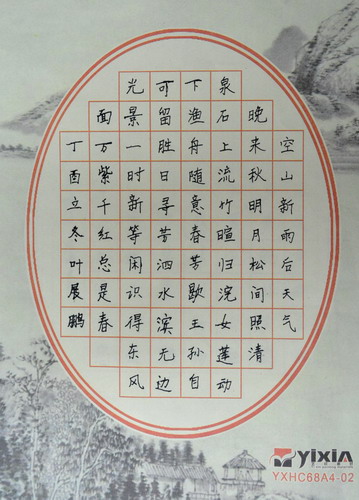 空山新雨后天气
晚来秋明月松间照清
泉石上流竹暄归浣女莲动
下渔舟随意春芳歇王孙自
可留胜日寻芳泗水滨无边
光景一时新等闲识得东风
面万紫千红总是春
丁酉立冬叶展鹏
YIXIN
YXHC68A4-02